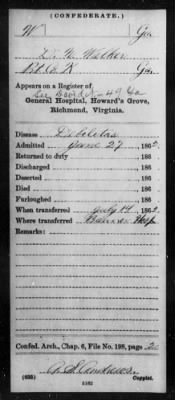 (CONFEDERATE.)
W Ga
Walker
Pvt Co K Ga.
Appears on a Register of
General Hospital, Howard's Grove,
Richmond, Virginia.
Disease Debilitas
Admitted June 27, 1862.
Returned to duty , 186 .
Discharged , 186 .
Deserted , 186 .
Died , 186 .
Furloughed , 186 .
When transferred July 14, 1862.
Where transferred Hosp
Remarks:
Confed. Arch., Chap. 6, File No. 198, page
(635) Copyist.